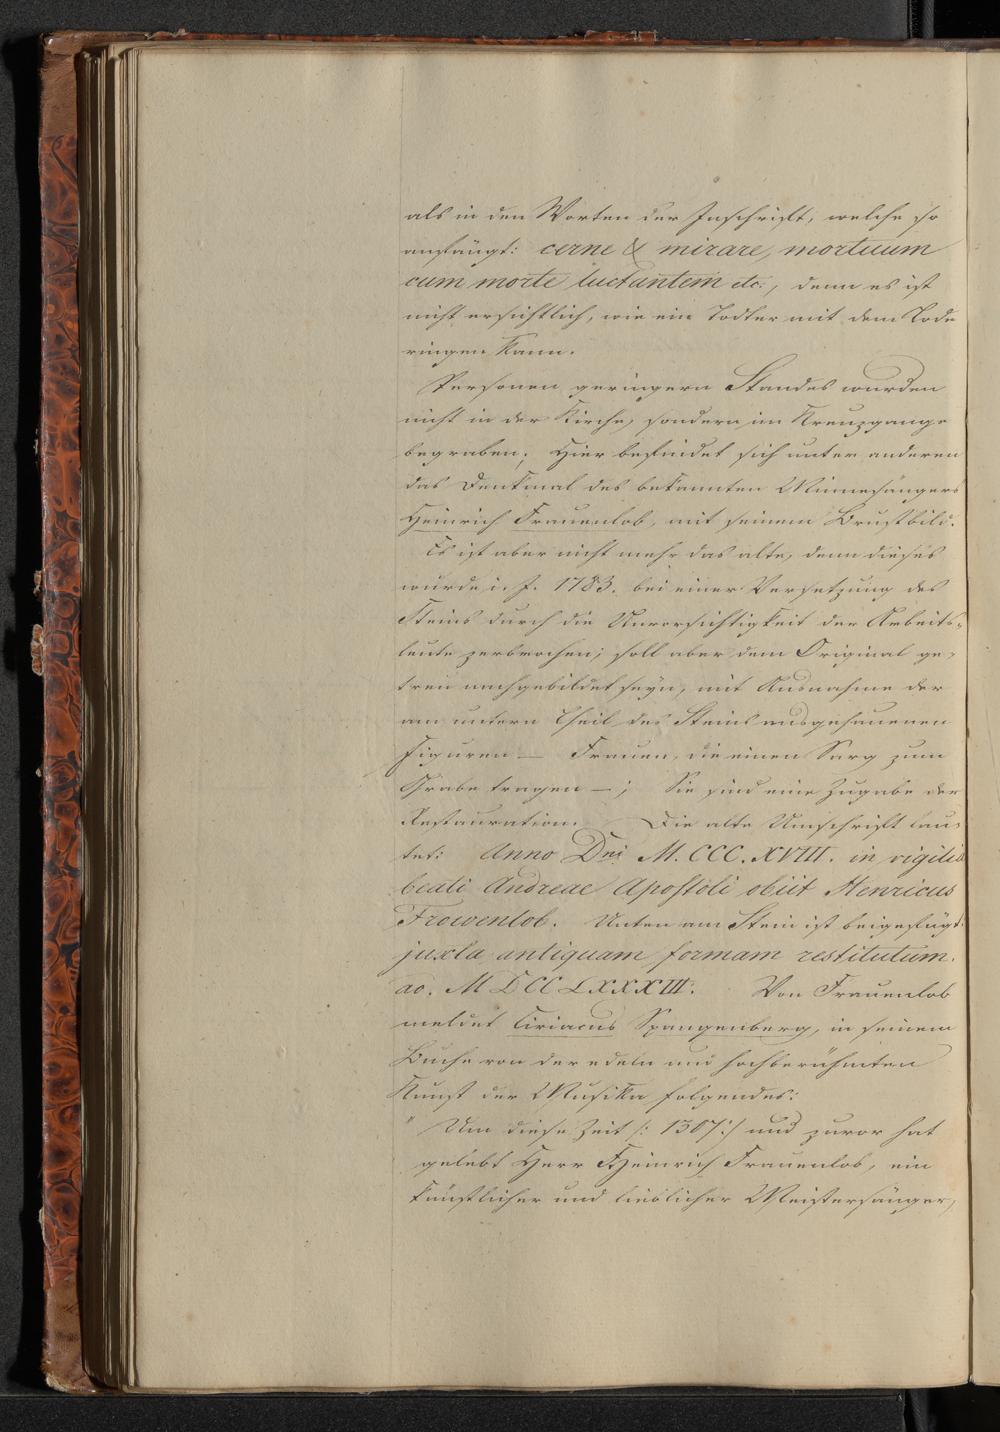 als in den Worten der Inschrift, welche so
anfängt: cerne & mirare, mortuum
cum morte luctantem etc., denn es ist
nicht ersichtlich, wie ein Todter mit dem Tode
ringen kann.
Personen geringern Standes wurden
nicht in der Kirche, sondern im Kreuzgange
begraben. Hier befindet sich unter anderen
das Denkmal des bekannten Minnesängers
Heinrich Frauenlob, mit seinem Brustbild.
Es ist aber nicht mehr das alte, denn dieses
wurde i. J. 1783. bei einer Versetzung des
Steins durch die Unvorsichtigkeit der Arbeits-
leute zerbrochen; soll aber dem Original ge-
treu nachgebildet seyn, mit Ausnahme der
am untern Theil des Steins ausgehauenen
Figuren — Frauen, die einen Sarg zum
Grabe tragen —; Sie sind eine Zugabe der
Restauration. Die alte Umschrift lau-
tet: Anno Dni M. CCC. XVIII. in vigilia
beati Andreae Apostoli obiit Henricus
Frowenlob. Unten am Stein ist beigefügt:
juxta antiquam formam restitutum.
ao. MDCCLXXXIII. Von Frauenlob
meldet Ciriacus Spangenberg, in seinem
Buche von der edeln und hochberühmten
Kunst der Musika folgendes:
" Um diese Zeit /: 1307 :/ und zuvor hat
gelebt Herr Heinrich Frauenlob, ein
künstlicher und lieblicher Meistersänger,